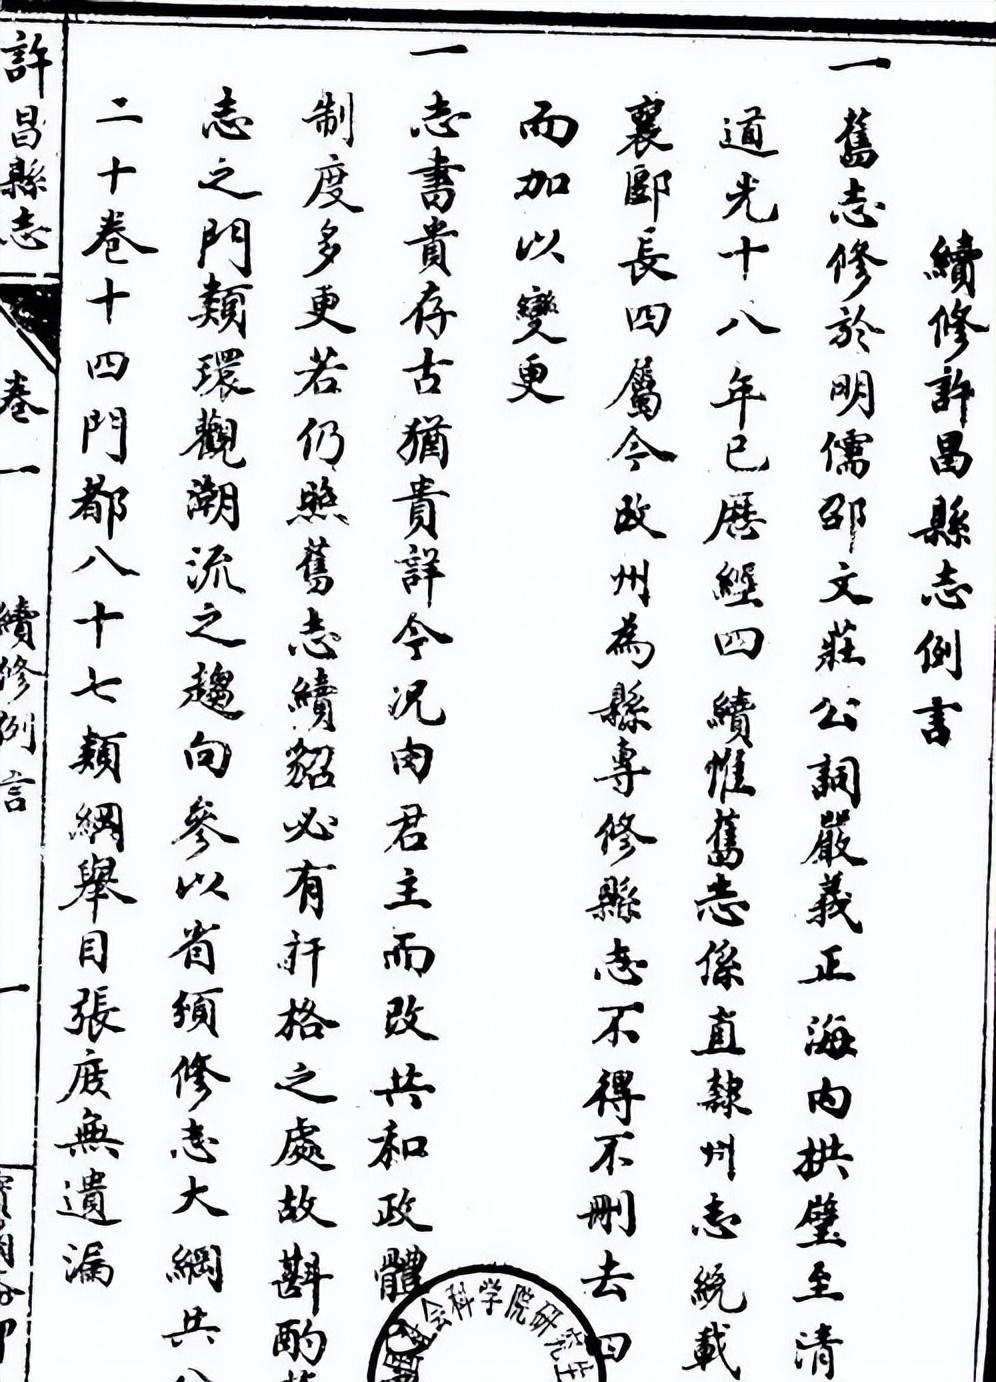 續修許昌縣志例言
一
舊志修於明儒邵文莊公詞嚴義正海内拱璧至清
道光十八年已歷經四續惟舊志係直隸州志統載
襄郾長四屬今改州為縣專修縣志不得不刪去四
而加以變更
一
志書貴存古猶貴詳今况由君主而改共和政體
制度多更若仍照舊志續貂必有訐格之處故斟酌
志之門類環觀潮流之趨向參以省頒修志大綱共
二十卷十四門都八十七類綱舉目張庶無遺漏
許昌縣志
卷一
續修例言
一
會科学院研究生